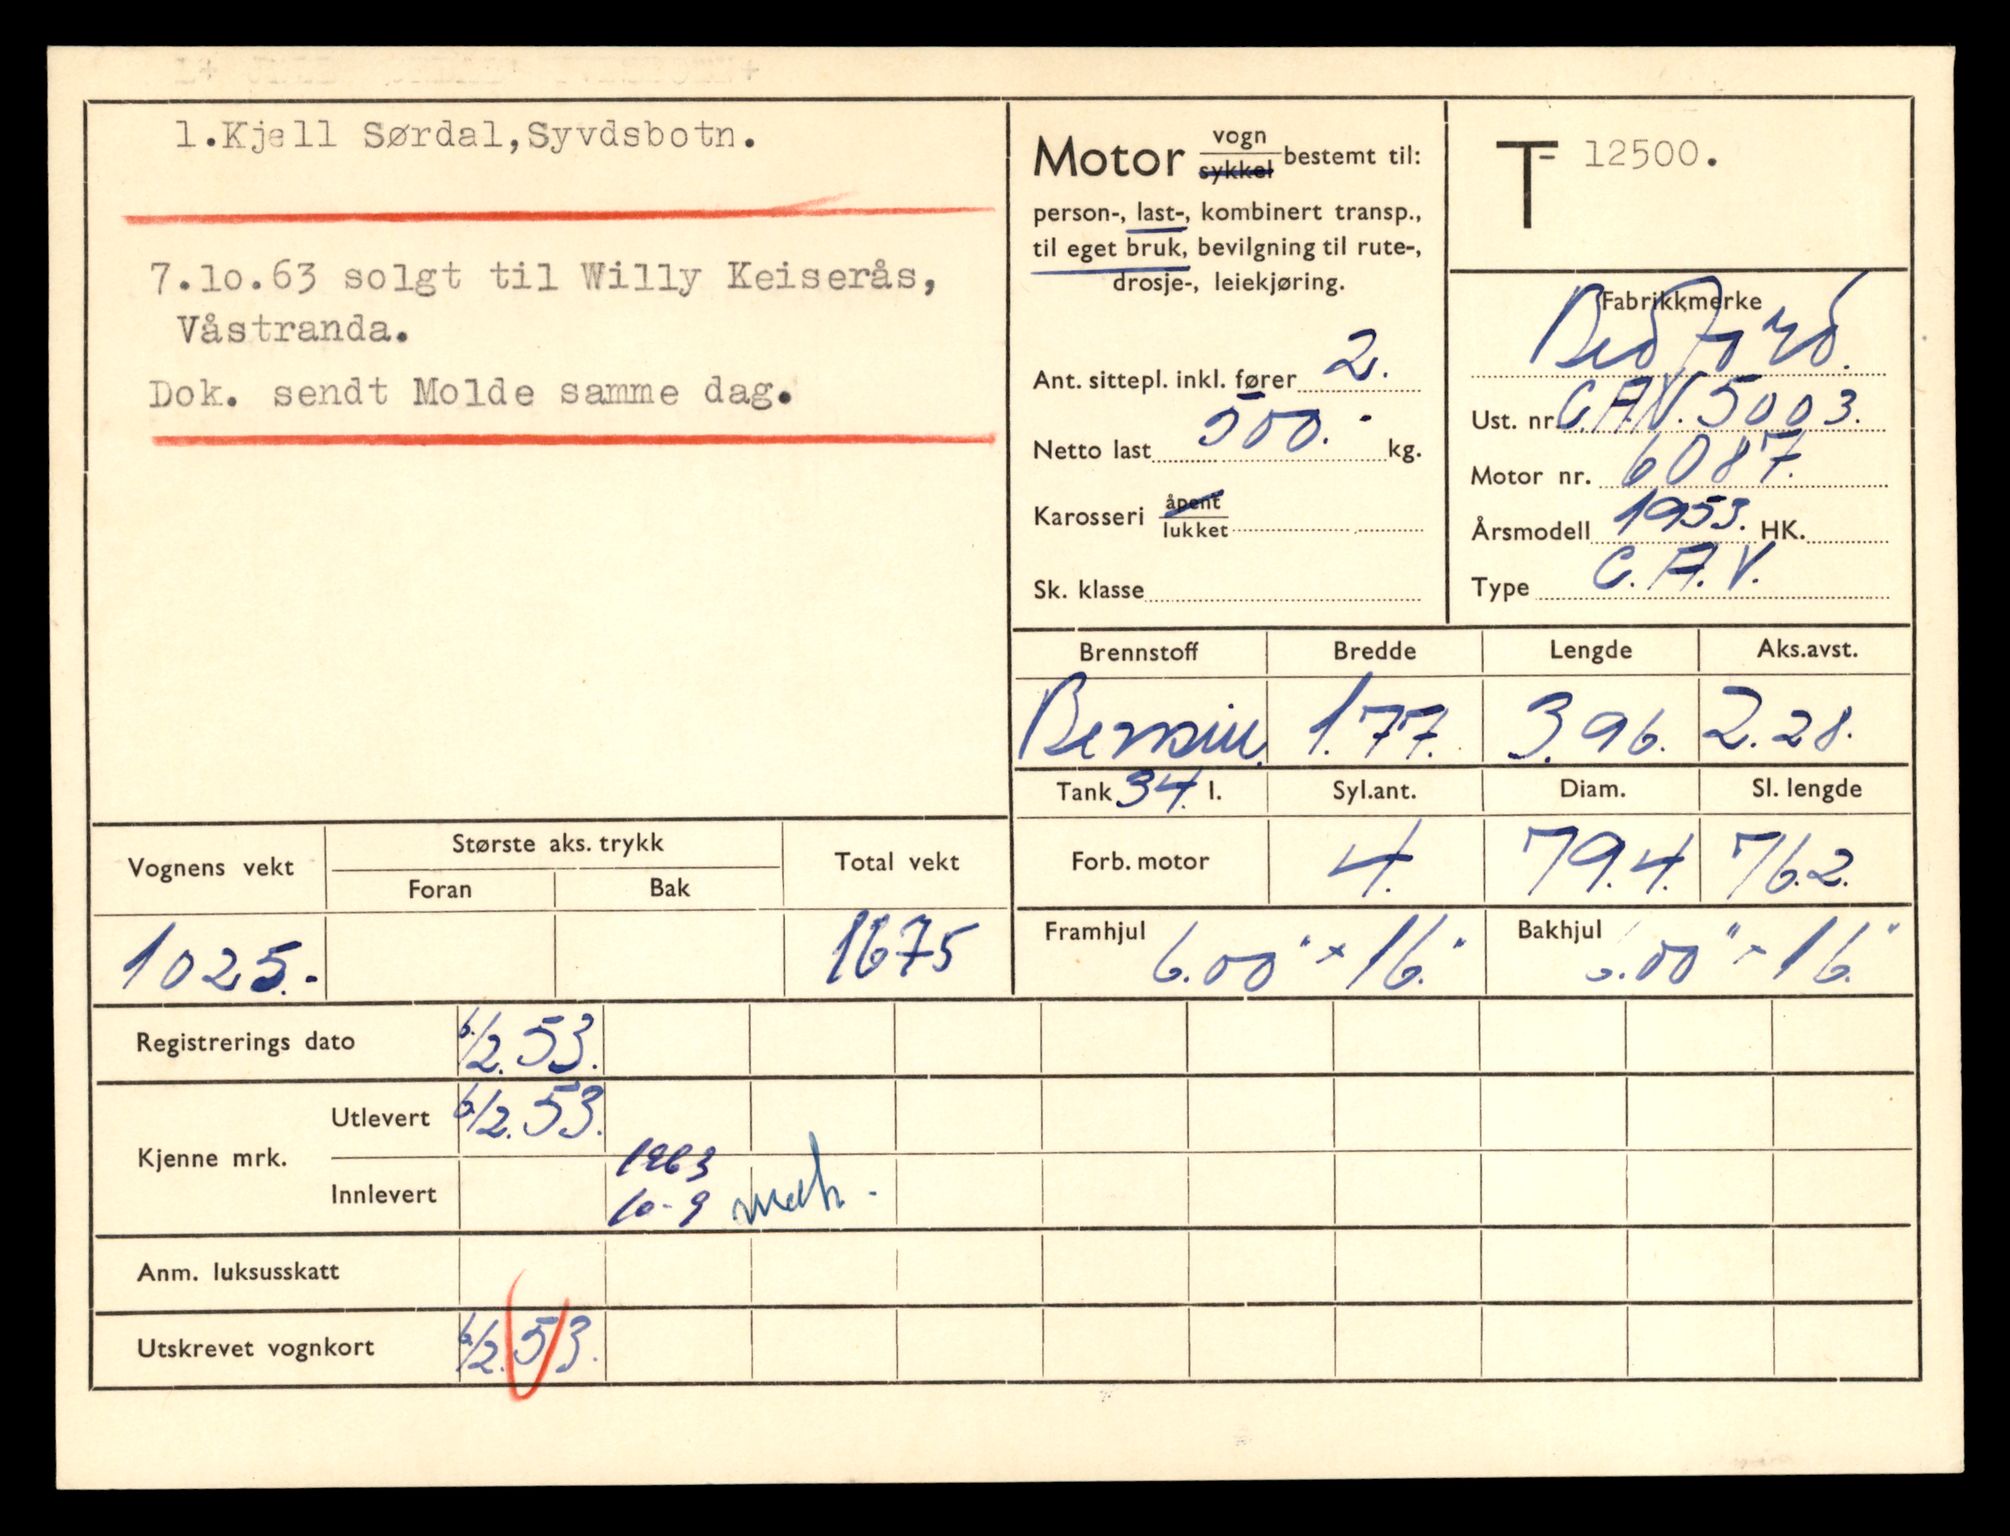 1.Kjell Sørdal,Syvdsbotn.
7.10.63 solgt til Willy Keiserås,
Våstranda.
Dok. sendt Molde samme dag.
Motor vogn sykkel bestemt til:
person-, last-, kombinert transp.,
til eget bruk, bevilgning til rute-,
drosje-, leiekjøring.
Ant. sittepl. inkl. fører 2.
Netto last 500.- kg.
Karosseri åpent lukket
Sk. klasse
T- 12500.
Fabrikkmerke
Bedford.
Ust. nr. C.A.V. 5003.
Motor nr. 6087.
Årsmodell 1953. HK.
Type C.A.V.
Brennstoff Bredde Lengde Aks.avst.
Bensin. 1.77. 3.96. 2.28.
Tank 34. l. Syl.ant. Diam. Sl. lengde
Forb. motor 4. 79.4. 76.2.
Framhjul 6.00" × 16." Bakhjul 6.00" × 16."
Vognens vekt Største aks. trykk Total vekt
Foran Bak
1025.- 1675
Registrerings dato 6/2.53.
Kjenne mrk. Utlevert 6/2.53.
Innlevert 1963
10-9
Anm. luksusskatt
Utskrevet vognkort 6/2.53.